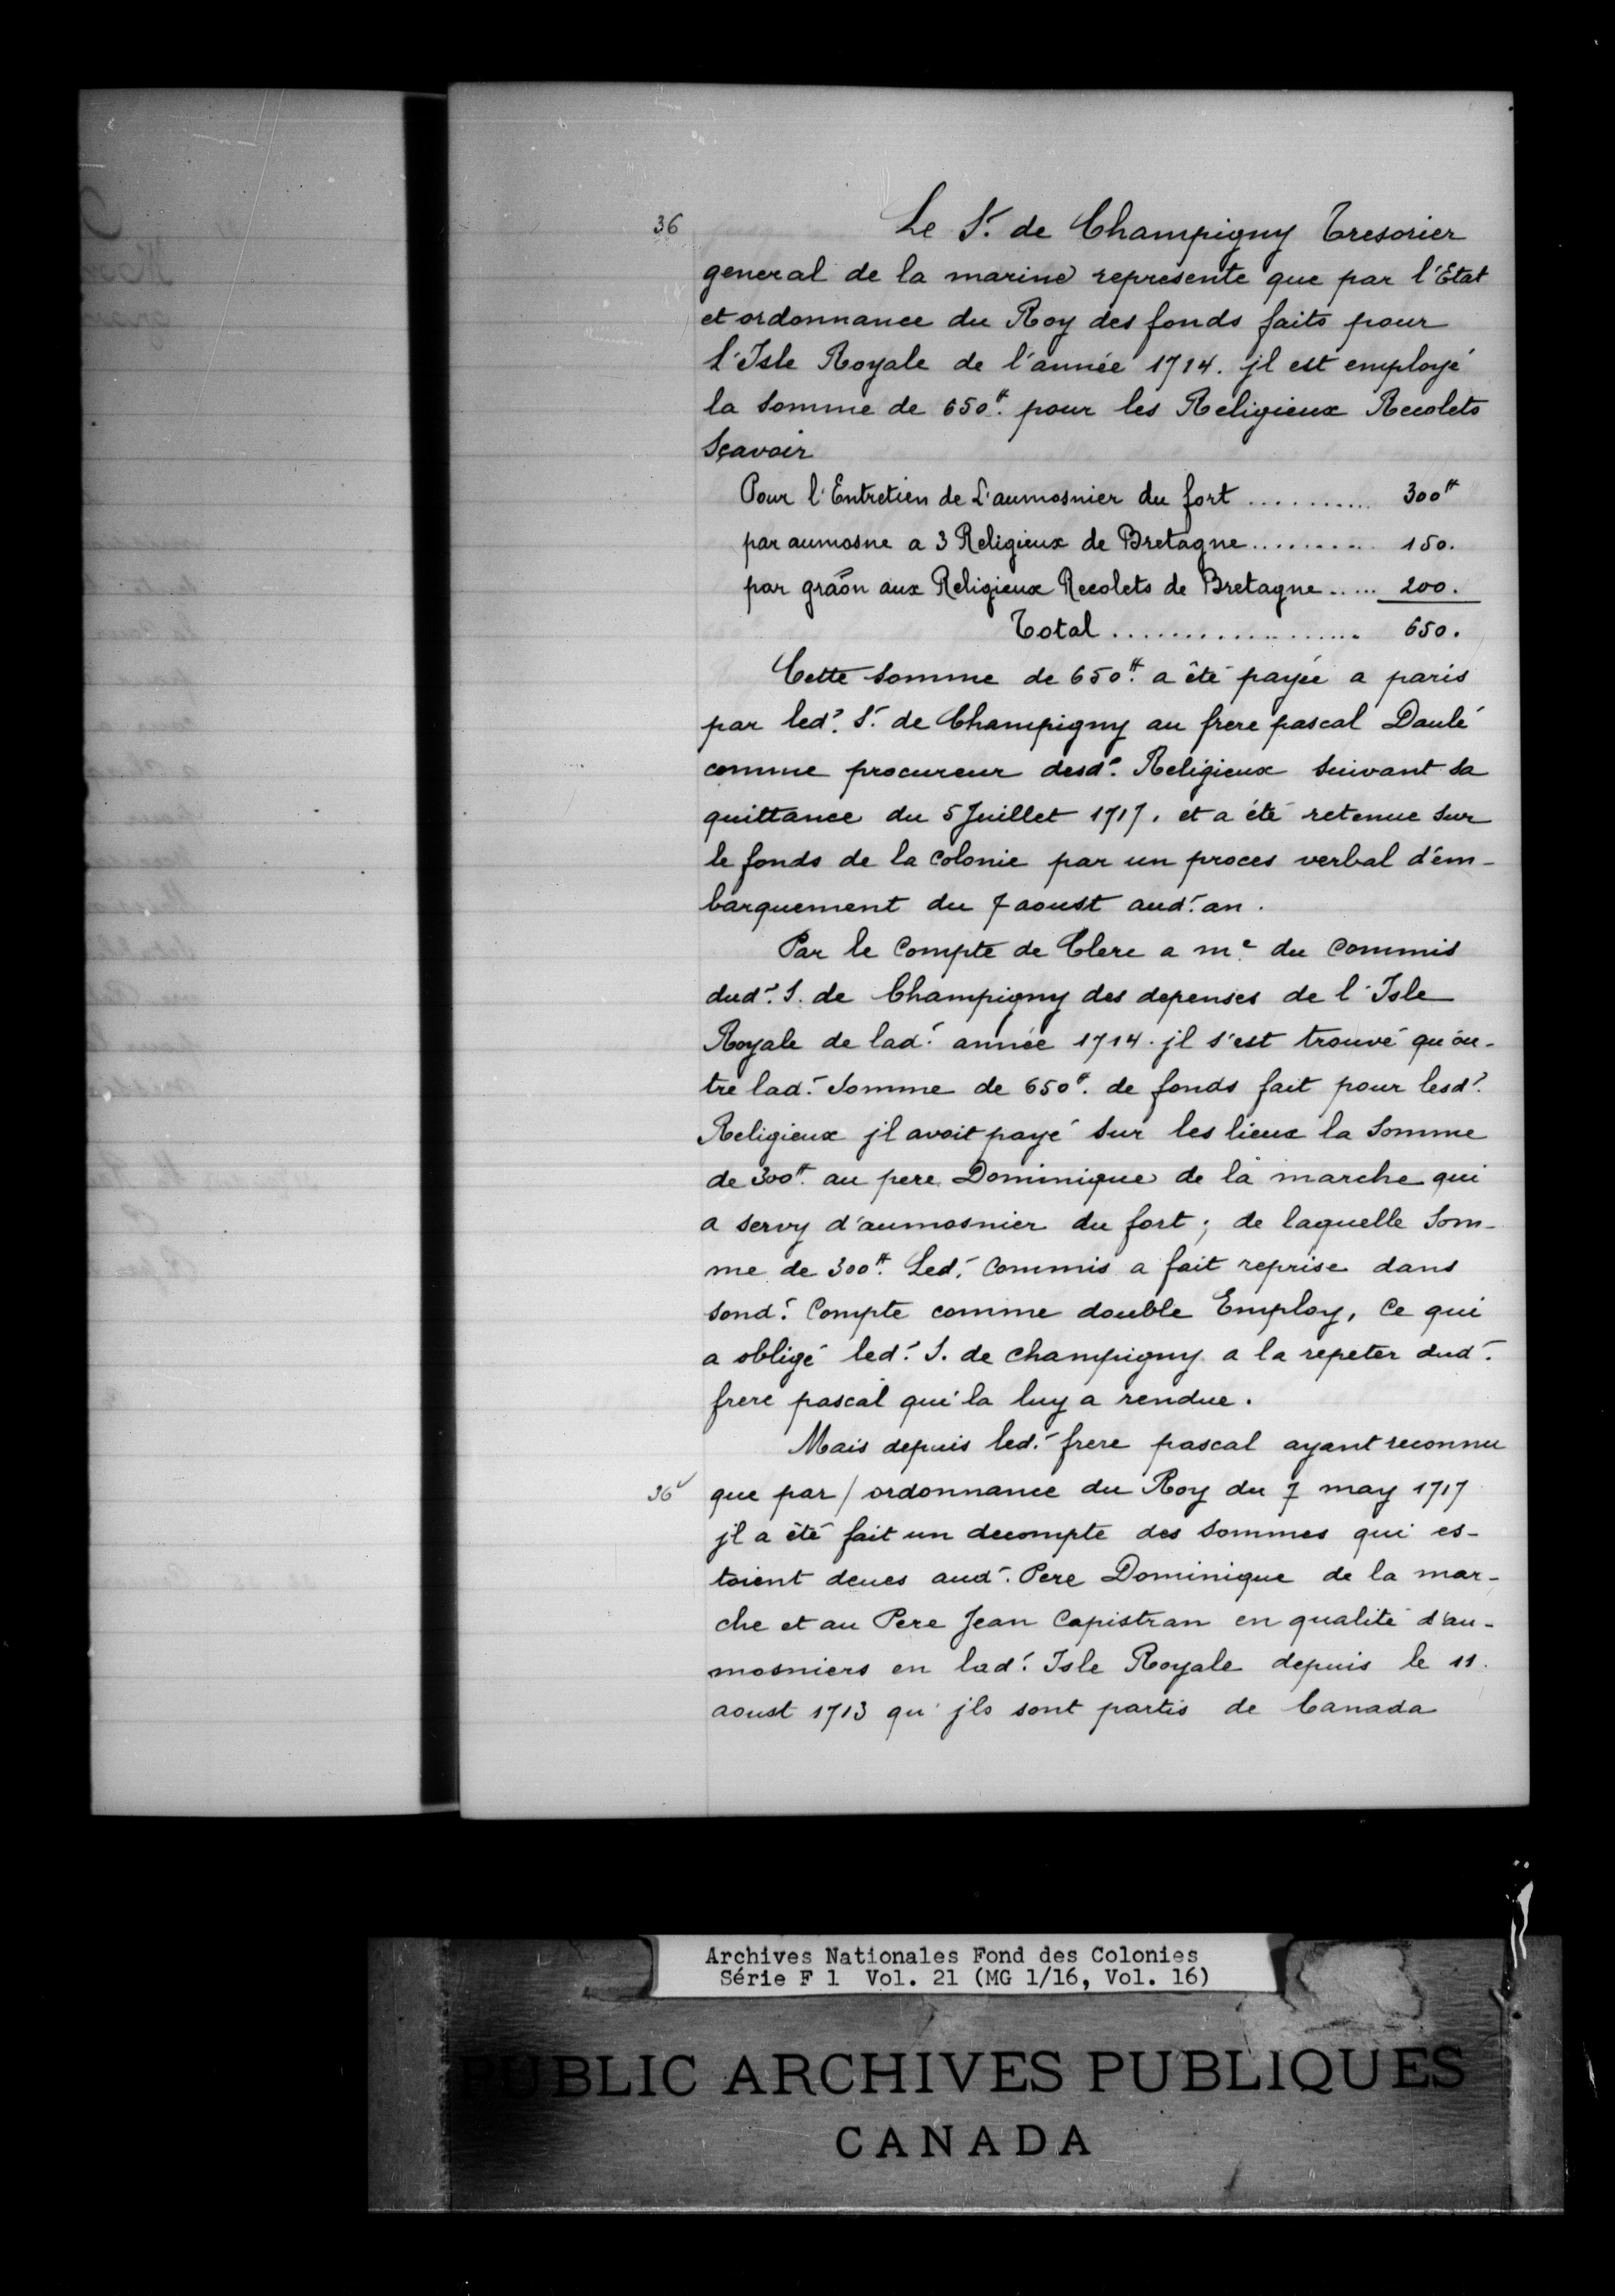 36
Le S.r de Champigny Tresorier
general de la marine represente que par l'Etat
et ordonnance du Roy des fonds faits pour
l'Isle Royale de l'année 1714. jl est employé
la somme de 650.₶ pour les Religieux Recolets
Sçavoir
Pour l'Entretien de L'aumosnier du fort ........... 300₶
par aumosne a 3 Religieux de Bretagne .......... 150.
par graõn aux Religieux Recolets de Bretagne ..... 200.
Total ................... 650.
Cette somme de 650.₶ a été payée a paris
par led.t S.r de Champigny au frere pascal Daulé
comme procureur desd.s Religieux suivant sa
quittance du 5 Juillet 1717, et a été retenue sur
le fonds de la colonie par un proces verbal d'em-
barquement du 7 aoust aud.t an.
Par le Compte de Clerc a m.e du Commis
dud.t S. de Champigny des depenses de l'Isle
Royale de lad.e année 1714. jl s'est trouvé qu'ou-
tre lad.e Somme de 650.₶ de fonds fait pour lesd.s
Religieux jl avoit payé sur les lieux la Somme
de 300.₶ au pere Dominique de la marche qui
a servy d'aumosnier du fort; de laquelle Som-
me de 300.₶ Led.t Commis a fait reprise dans
sond.t Compte comme double Employ, Ce qui
a obligé led.t S. de champigny a la repeter dud.t
frere pascal qui la luy a rendue.
Mais depuis led.t frere pascal ayant reconnu
36v que par / ordonnance du Roy du 7 may 1717
jl a été fait un decompte des sommes qui es-
toient deues aud.t Pere Dominique de la mar-
che et au Pere Jean Capistran en qualité d'au-
mosniers en lad.e Isle Royale depuis le 11.
aoust 1713 qu'jls sont partis de Canada
Archives Nationales Fond des Colonies
Série F 1 Vol. 21 (MG 1/16, Vol. 16)
PUBLIC ARCHIVES PUBLIQUES
CANADA